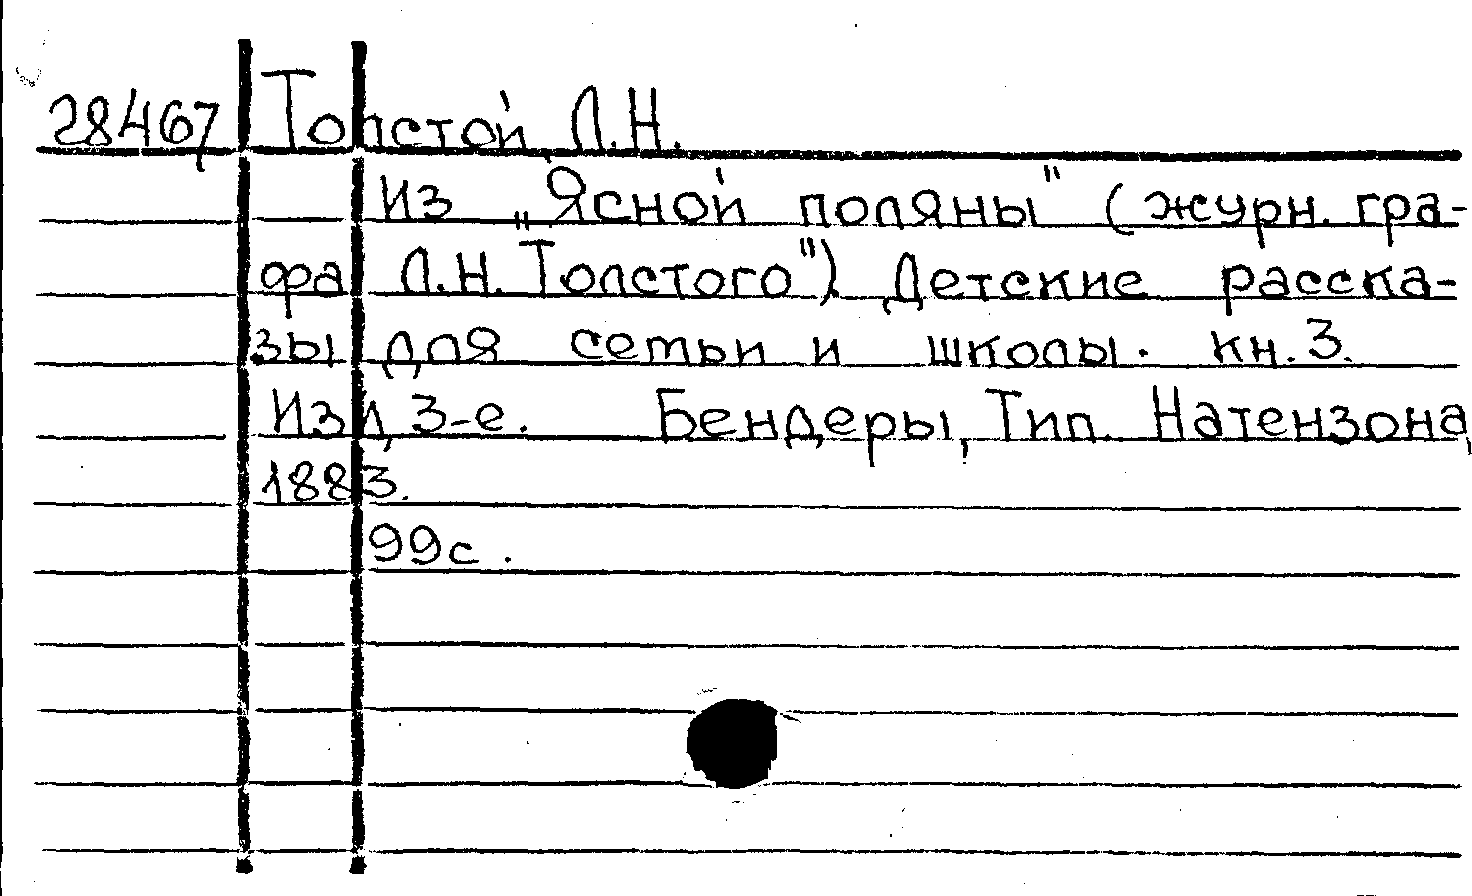 28467 Толстой Л.Н.
Из „Ясной поляны" (журн. гра-
фа „Л.Н. Толстого"). Детские расска-
зы для семьи и школы. кн. 3.
Изд. 3-е. Бендеры, Тип. Натензона,
1883.
99с.